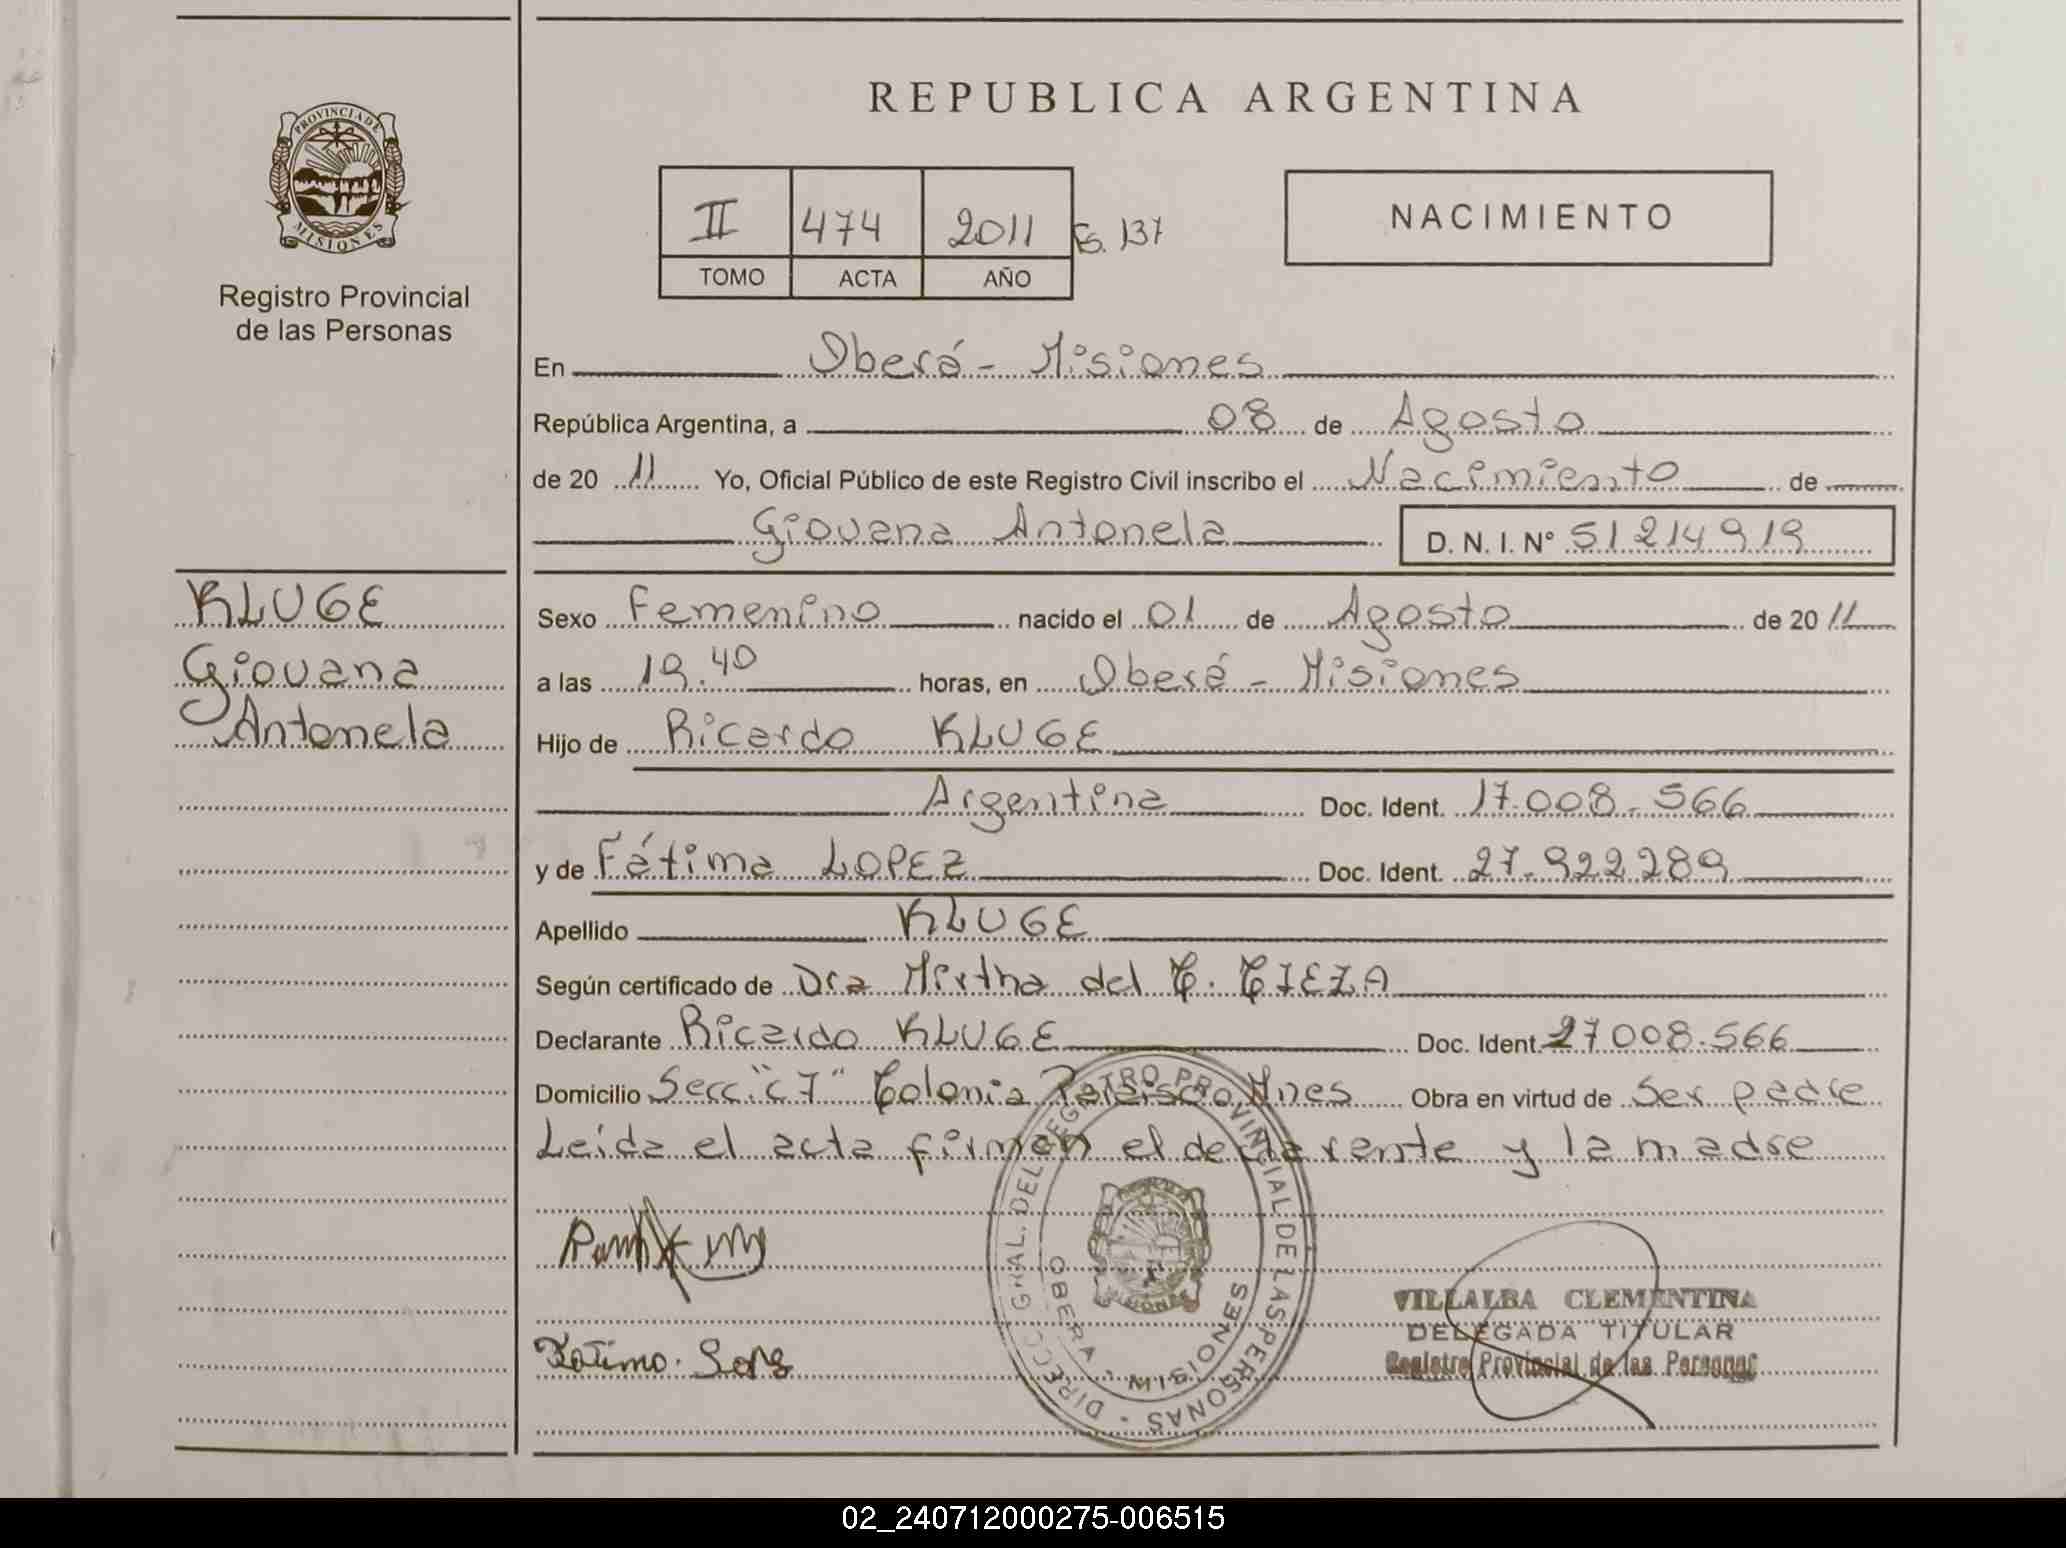 PROVINCIA DE
MISIONES
Registro Provincial
de las Personas
KLUGE
Giovana
Antonela
REPUBLICA ARGENTINA
II 474 2011 Fs. 137
TOMO ACTA AÑO
NACIMIENTO
En Oberá - Misiones
República Argentina, a 08 de Agosto
de 20 11 Yo, Oficial Público de este Registro Civil inscribo el Nacimiento de
Giovana Antonela D. N. I. N° 51214919
Sexo Femenino nacido el 01 de Agosto de 20 11
a las 19.40 horas, en Oberá - Misiones
Hijo de Ricardo KLUGE
Argentina Doc. Ident. 17.008.566
y de Fátima LOPEZ Doc. Ident. 27.922289
Apellido KLUGE
Según certificado de Dra Mirtha del C. CIEZA
Declarante Ricardo KLUGE Doc. Ident. 27008.566
Domicilio Secc. "C 7" Colonia Paraiso Mnes Obra en virtud de Ser padre
Leída el acta firman el declarante y la madre
DIRECC. GRAL. DEL REGISTRO PROVINCIAL DE LAS PERSONAS
OBERA - MISIONES
MISIONES
VILLALBA CLEMENTINA
DELEGADA TITULAR
Registro Provincial de las Personas
02_240712000275-006515